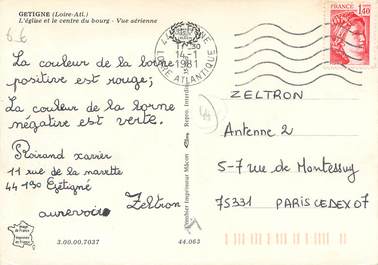 GETIGNE (Loire-Atl.)
L'église et le centre du bourg - Vue aérienne
6.6
La couleur de la borne
positive est rouge;
La couleur de la borne
négative est verte.
Xavier
11 rue de la
44190 Gétigné
aurevoir Zeltron
Image de France
Imprimée en France
3.00.00.7037
44.063
Imprimeur Mâcon
Repro. interdite
44
17-30
14-1
1981
LOIRE ATLANTIQUE
FRANCE
1,40
ZELTRON
Antenne 2
5-7 rue de Montessuy
75331 PARIS CEDEX 07